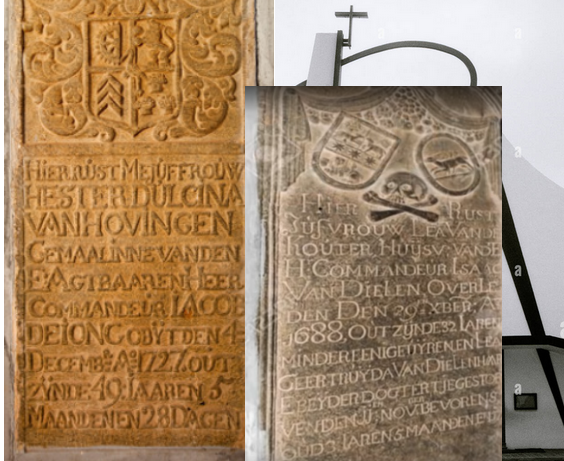 HIER RÚST MEJÚFFROUW
HESTER DÚLCINA
VAN HOVINGEN
GEMAALINNE VAN DEN
E AGTBAAREN HEER
COMMANDEÚR IACOB
DE IONG OBYT DEN 4
DECEMB Aº 1727 OÚT
ZYNDE 49 IAAREN 5
MAANDEN EN 28 DAGEN
HIER RUST
IÚFVROUW LEA VAN
ROUTER HÚÝSV: VAN
H: COMMANDEUR ISA
VAN DIELEN OVERLE
DEN DEN 29 XBER: A
1688. OUT ZÝNDE 32 IAREN
MINDER EEN
GEERTRÚYDA VAN DIELEN
E BEYDER DOGTER
VENDEN NOV: BEVORENS
OUD 3 IAREN 5 MAANDEN
a
a
a
a
a